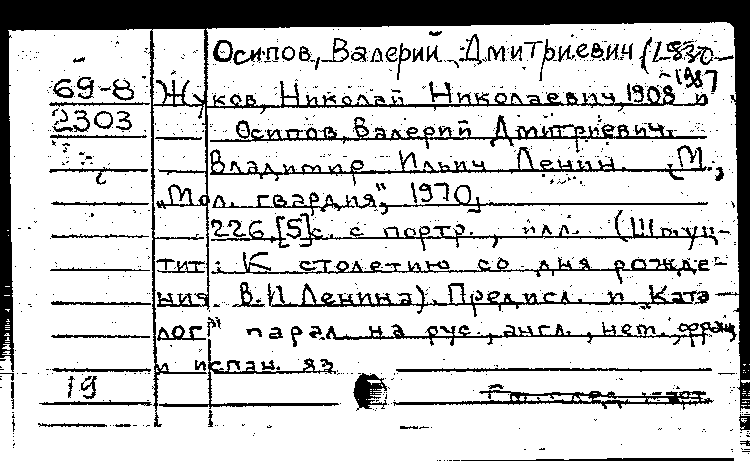 Осипов, Валерий Дмитриевич (1930-
-1987
69-8 Жуков, Николай Николаевич, 1908 и
2303 Осипов, Валерий Дмитриевич.
Владимир Ильич Ленин. [М.,
"Мол. гвардия", 1970]
226, [5] с. с портр., илл. (Шмуц-
тит.: К столетию со дня рожде-
ния В.И. Ленина). Предисл. и "Ката-
лог" парал. на рус., англ., нем., франц.
и испан. яз
19 след.